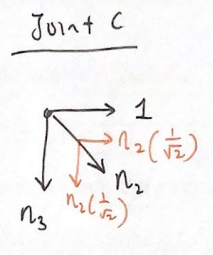 Joint C
1
n₂(1/√2)
n₂
n₂(1/√2)
n₃